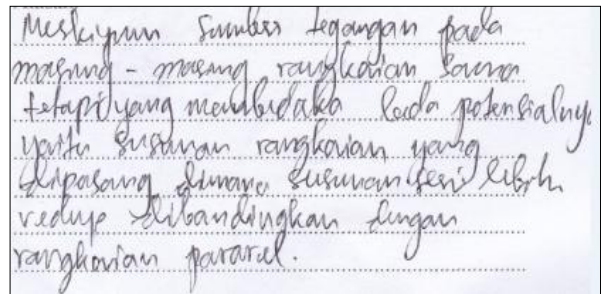 Meskipun sumber tegangan pada
masing - masing rangkaian sama
tetapi yang membedaka beda potensialnya
yaitu susunan rangkaian yang
dipasang dimana susunan seri lebih
redup dibandingkan dengan
rangkaian pararel.